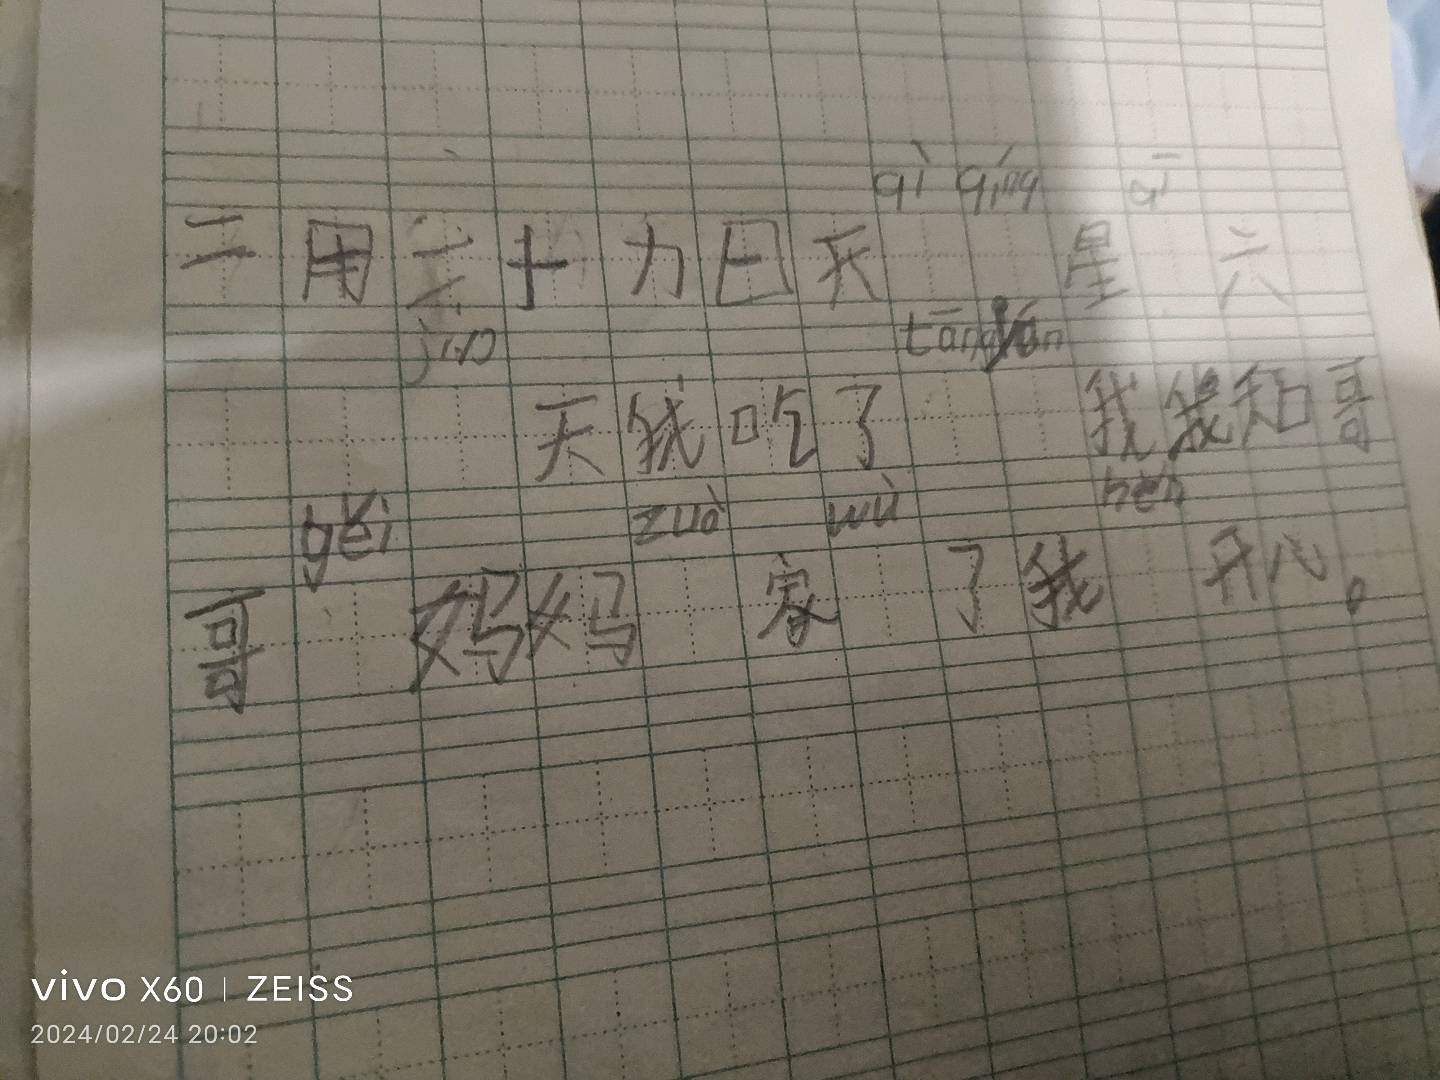 qì qíng
二月二十力日天 星 六
jīn tāngyán
天我吃了 我我和哥
gěi zuò wù hěn
哥 妈妈 家 了我 开心。
vivo X60 | ZEISS
2024/02/24 20:02